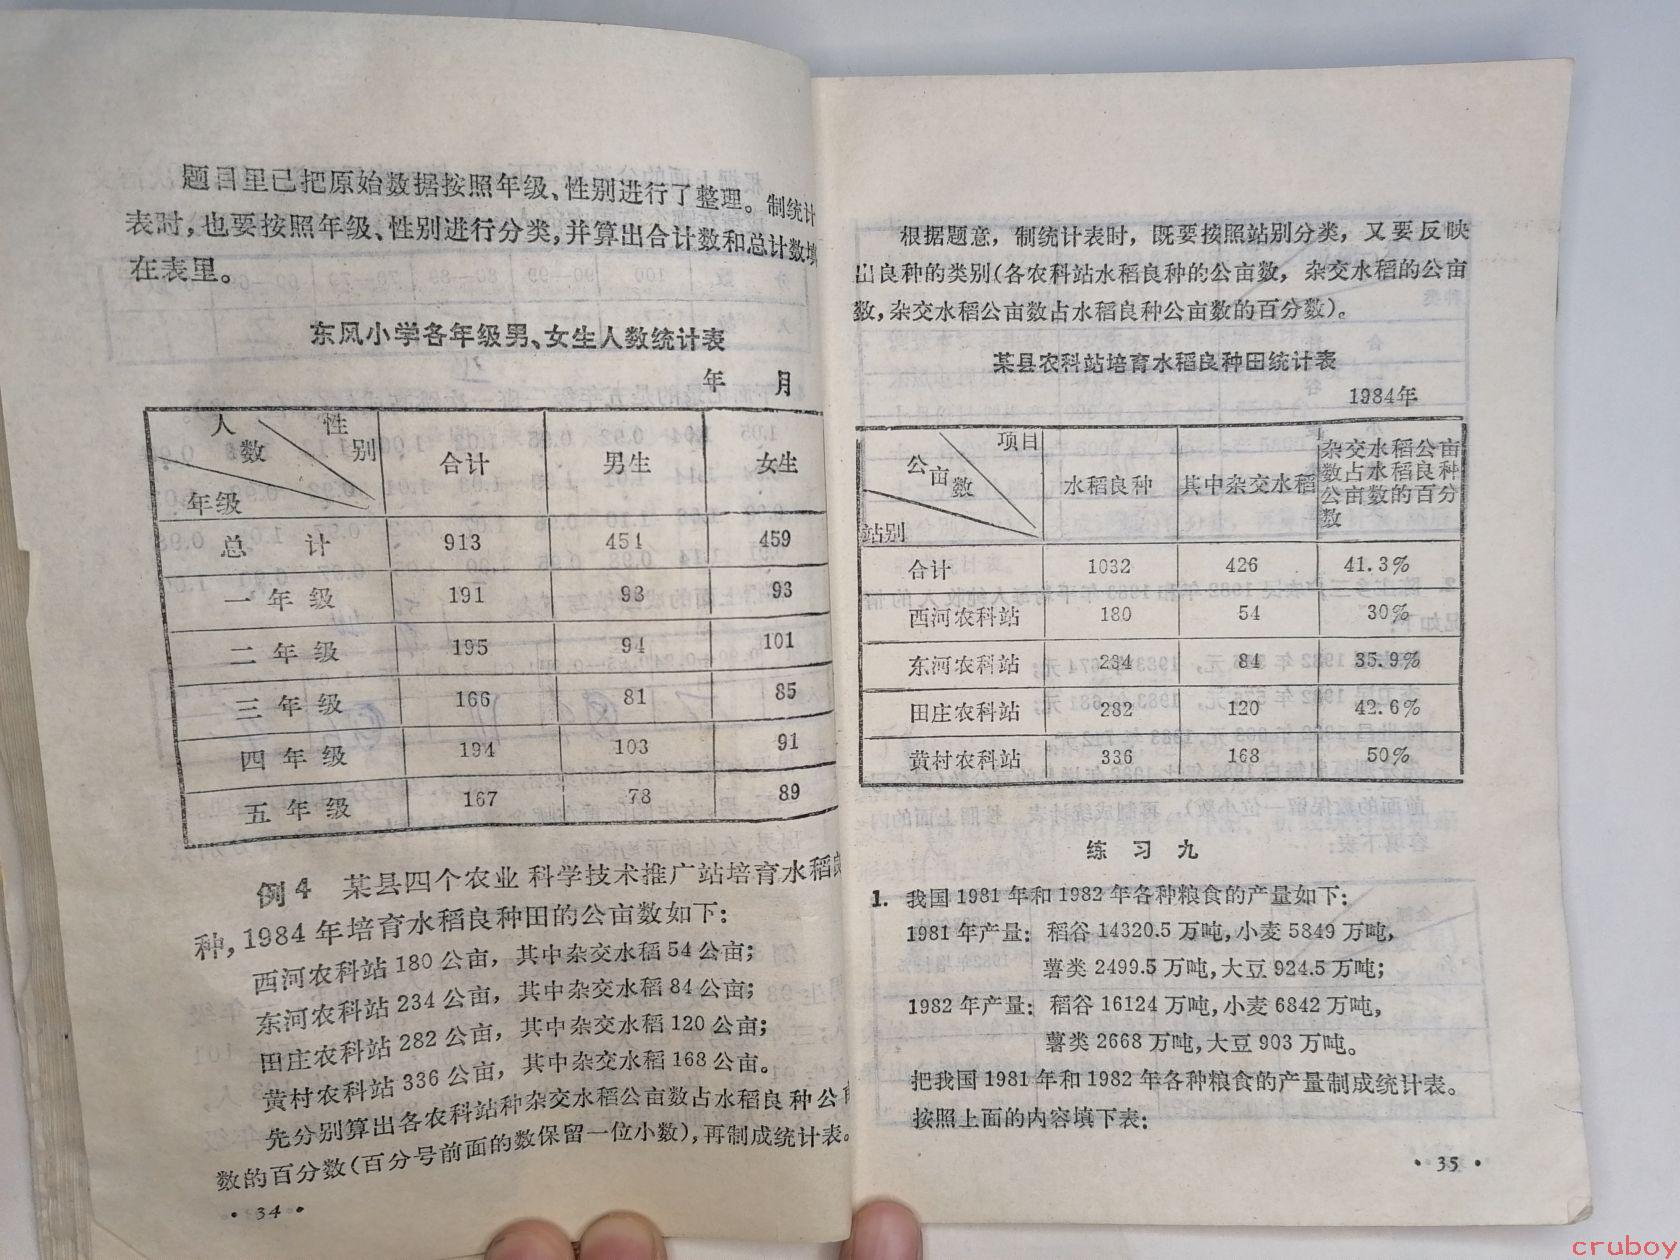 题目里已把原始数据按照年级、性别进行了整理。制统计
表时,也要按照年级、性别进行分类,并算出合计数和总计数填
在表里。
东风小学各年级男、女生人数统计表
年 月
人数 性别 年级 合计 男生 女生
总 计 913 454 459
一 年 级 191 98 93
二 年 级 195 94 101
三 年 级 166 81 85
四 年 级 194 103 91
五 年 级 167 78 89
例4 某县四个农业科学技术推广站培育水稻良
种,1984年培育水稻良种田的公亩数如下:
西河农科站180公亩,其中杂交水稻54公亩;
东河农科站234公亩,其中杂交水稻84公亩;
田庄农科站282公亩,其中杂交水稻120公亩;
黄村农科站336公亩,其中杂交水稻168公亩。
先分别算出各农科站种杂交水稻公亩数占水稻良种公亩
数的百分数(百分号前面的数保留一位小数),再制成统计表。
· 34 ·
根据题意,制统计表时,既要按照站别分类,又要反映
出良种的类别(各农科站水稻良种的公亩数,杂交水稻的公亩
数,杂交水稻公亩数占水稻良种公亩数的百分数)。
某县农科站培育水稻良种田统计表
1984年
公亩数 项目 站别 水稻良种 其中杂交水稻 杂交水稻公亩数占水稻良种公亩数的百分数
合计 1032 426 41.3%
西河农科站 180 54 30%
东河农科站 234 84 35.9%
田庄农科站 282 120 42.6%
黄村农科站 336 168 50%
练 习 九
1. 我国1981年和1982年各种粮食的产量如下:
1981年产量:稻谷14320.5万吨,小麦5849万吨,
薯类2499.5万吨,大豆924.5万吨;
1982年产量:稻谷16124万吨,小麦6842万吨,
薯类2668万吨,大豆903万吨。
把我国1981年和1982年各种粮食的产量制成统计表。
按照上面的内容填下表:
· 35 ·
cruboy